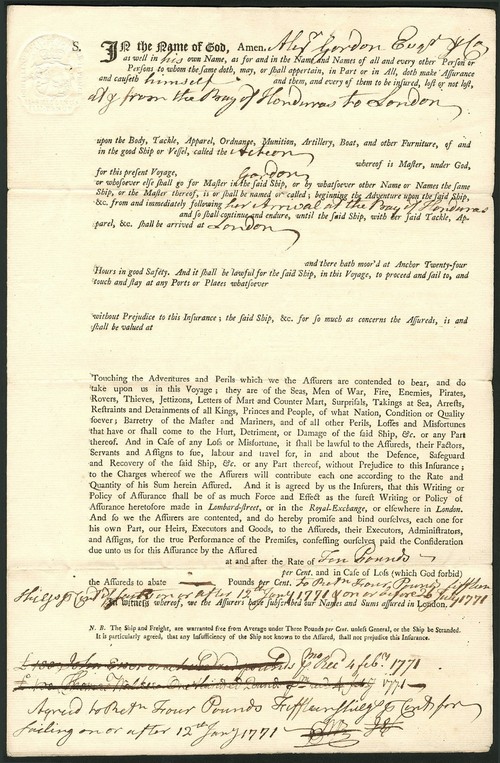 S. In the Name of God, Amen. Alexr Gordon Esqr & Co
as well in his own Name, as for and in the Name and Names of all and every other Person or
Persons to whom the same doth, may, or ſhall appertain, in Part or in All, doth make Aſſurance
and cauſeth himself and them, and every of them to be inſured, loſt or not loſt,
at & from the Bay of Honduras to London
upon the Body, Tackle, Apparel, Ordnance, Munition, Artillery, Boat, and other Furniture, of and
in the good Ship or Veſſel, called the Acteon
whereof is Maſter, under God,
for this preſent Voyage, Gordon
or whoſoever elſe ſhall go for Maſter in the ſaid Ship, or by whatſoever other Name or Names the ſame
Ship, or the Maſter thereof, is or ſhall be named or called; beginning the Adventure upon the ſaid Ship,
&c. from and immediately following her Arrival at the Bay of Honduras
and ſo ſhall continue and endure, until the ſaid Ship, with her ſaid Tackle, Ap-
parel, &c. ſhall be arrived at London
and there hath mor'd at Anchor Twenty-four
Hours in good Safety. And it ſhall be lawful for the ſaid Ship, in this Voyage, to proceed and ſail to, and
touch and ſtay at any Ports or Places whatſoever
without Prejudice to this Inſurance; the ſaid Ship, &c. for ſo much as concerns the Aſſureds, is and
ſhall be valued at
Touching the Adventures and Perils which we the Aſſurers are contended to bear, and do
take upon us in this Voyage; they are of the Seas, Men of War, Fire, Enemies, Pirates,
Rovers, Thieves, Jettizons, Letters of Mart and Counter Mart, Surpriſals, Takings at Sea, Arreſts,
Reſtraints and Detainments of all Kings, Princes and People, of what Nation, Condition or Quality
ſoever; Barretry of the Maſter and Mariners, and of all other Perils, Loſſes and Misfortunes
that have or ſhall come to the Hurt, Detriment, or Damage of the ſaid Ship, &c. or any Part
thereof. And in Caſe of any Loſs or Misfortune, it ſhall be lawful to the Aſſureds, their Factors,
Servants and Aſſigns to ſue, labour and travel for, in and about the Defence, Safeguard
and Recovery of the ſaid Ship, &c. or any Part thereof, without Prejudice to this Inſurance;
to the Charges whereof we the Aſſurers will contribute each one according to the Rate and
Quantity of his Sum herein Aſſured. And it is agreed by us the Inſurers, that this Writing or
Policy of Aſſurance ſhall be of as much Force and Effect as the ſureſt Writing or Policy of
Aſſurance heretofore made in Lombard-ſtreet, or in the Royal-Exchange, or elſewhere in London.
And ſo we the Aſſurers are contented, and do hereby promiſe and bind ourſelves, each one for
his own Part, our Heirs, Executors and Goods, to the Aſſureds, their Executors, Adminiſtrators,
and Aſſigns, for the true Performance of the Premiſes, confeſſing ourſelves paid the Conſideration
due unto us for this Aſſurance by the Aſſured
at and after the Rate of Ten Pounds
per Cent. and in Caſe of Loſs (which God forbid)
the Aſſureds to abate Pounds per Cent. to Retn Four Pounds Fifteen
Shigs p Cent on or after 12th Jany 1771 1771
In witneſs whereof, we the Aſſurers have ſubſcribed our Names and Sums aſſured in London.
N. B. The Ship and Freight, are warranted free from Average under Three Pounds per Cent. unleſs General, or the Ship be Stranded.
It is particularly agreed, that any Inſufficiency of the Ship not known to the Aſſured, ſhall not prejudice this Inſurance.
£100 John one hundred pounds pm Recd 4 febry 1771
£100 Thomas One Hundred Pounds Recd 4 feby 1771
Agreed to Retn Four Pounds Fifteen Shigs p Cent for
sailing on or after 12th Jany 1771